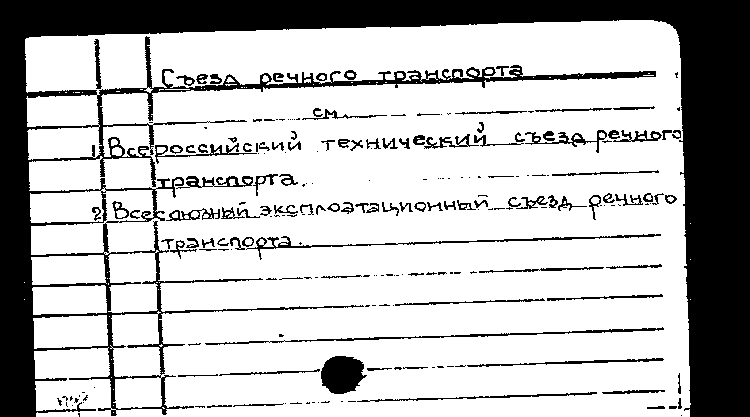 Съезд речного транспорта
см.
1) Всероссийский технический съезд речного
транспорта.
2) Всесоюзный эксплоатационный съезд речного
транспорта.